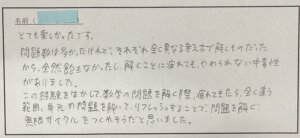 名前（
とても楽しかったです。
問題数は多かったけれど、それぞれ全く異なる考え方で解くものだった
から、全然飽きなかったし、解くことに疲れても、やめられない中毒性
がありました。
この経験を生かして、数学の問題を解く際、疲れてきたら、全く違う
範囲、単元の問題を解いて、リフレッシュすることで、問題を解く
無限サイクルをつくれそうだと思いました。